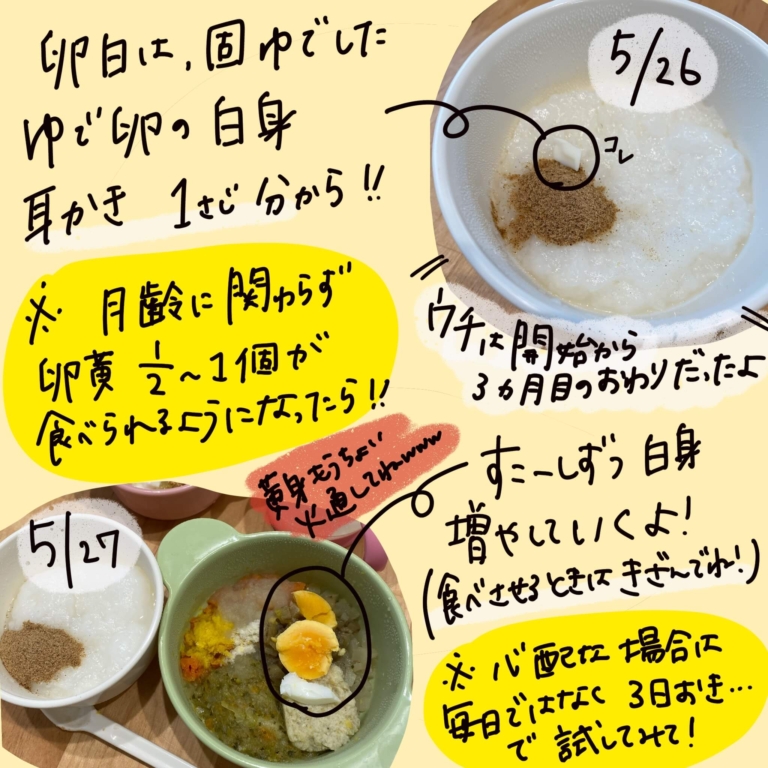 卵白は、固ゆでした
ゆで卵の白身
耳かき 1さじ分から!!
5/26
コレ
※ 月齢に関わらず
卵黄 1/2~1個が
食べられるようになってたら!!
ウチは開始から
3ヵ月目のおわりだったよ
黄身もうちょい
火通してねーwww
すこーしずつ 白身
増やしていくよ!
(食べさせるときは きざんでね!)
5/27
※ 心配な場合は
毎日ではなく 3日おき…
で 試してみて!